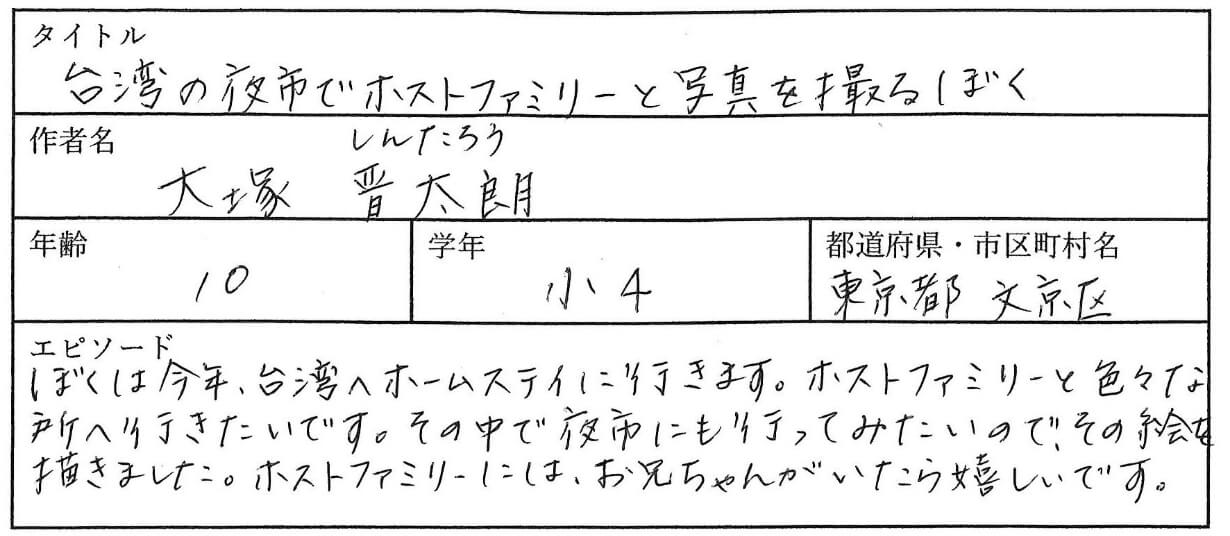 タイトル
台湾の夜市でホストファミリーと写真を撮るぼく
作者名
しんたろう
大塚 晋太朗
年齢
10
学年
小4
都道府県・市区町村名
東京都 文京区
エピソード
ぼくは今年、台湾へホームステイに行きます。ホストファミリーと色々な
所へ行きたいです。その中で夜市にも行ってみたいので、その絵を
描きました。ホストファミリーには、お兄ちゃんがいたら嬉しいです。